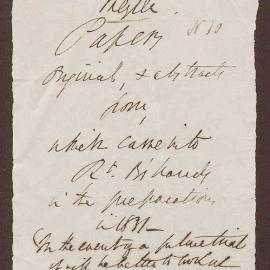 Papers No 10
Original, & abstracts
from,
which came into
Rt. B's hands
in the preparations
in 1831
In the event of a future trial
it will be better to look at